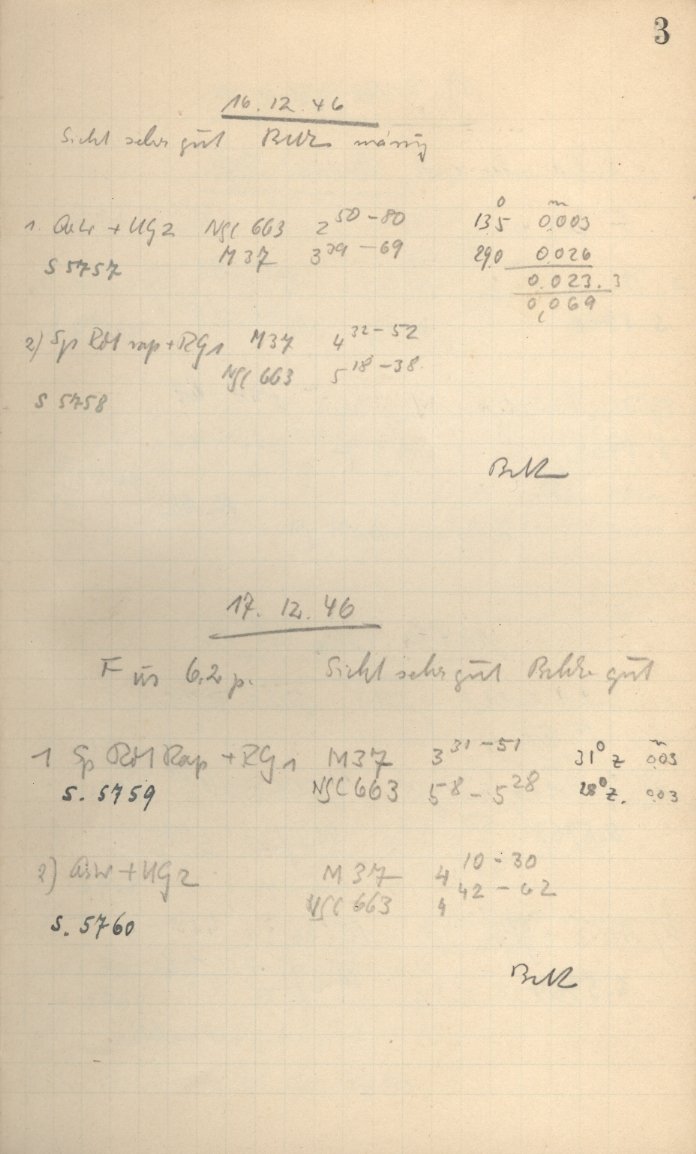 3
16.12.46
Sicht sehr gut Bilder mässig
1. + UG2 NGC 663 2 50-80 13,5° 0,003 m
S 5757 M 37 3 39-69 29,0 0,026
0,023.3
0,069
2) Sp Rot rap + RG1 M37 4 32-52
NGC 663 5 18-38
S 5758
17. 12. 46
F 6,2 p. Sicht sehr gut Bilder gut
1 Sp Rot Rap + RG1 M37 3 31-51 31° z 0,03 m
S. 5759 NGC 663 5 8 - 5 28 28° z. 0,03
2) + UG2 M 37 4 10-30
NGC 663 4 42-62
S. 5760